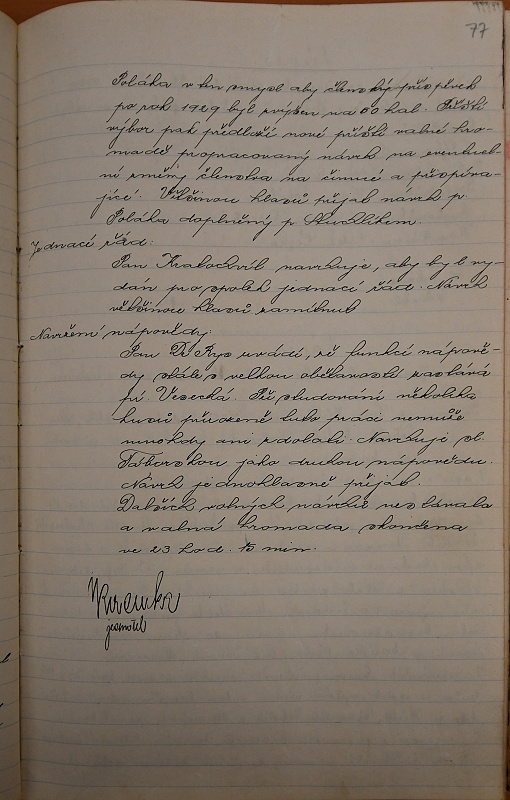 77
Poláka v ten smysl aby členský příspěvek
po rok 1929 byl zvýšen na 50 hal. Příští
výbor pak předloží nové příští valné hro-
madě propracovaný návrh na eventuel-
ní změny členstva na činné a přispíva-
jící. Většinou hlasů přijat návrh p.
Poláka doplněný p. Stuchlíkem.
Jednací řád:
Pan Kratochvíl navrhuje, aby byl vy-
dán pro spolek jednací řád. Návrh
většinou hlasů zamítnut
Navržení nápovědy:
Pan Dr. Rys uvádí, že funkci nápově-
dy stále s velkou obětavostí zastává
pí. Veselá. Při studování několika
kusů přirozeně tuto práci nemůže
mnohdy ani zdolati. Navrhuje sl.
Táborskou jako druhou nápovědu.
Návrh jednohlasně přijat.
Dalších volných návrhů nezbývalo
a valná hromada skončena
ve 23 hod. 15 min.
jednatel